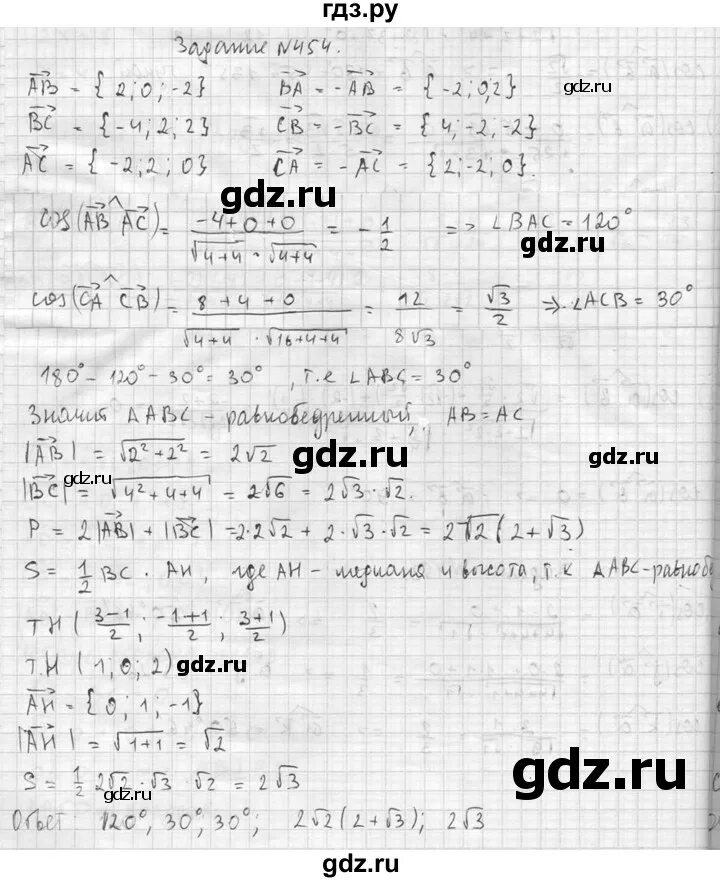 гдз.ру
Задание №454.
AB = {2; 0; -2} BA = -AB = {-2; 0; 2}
BC = {-4; 2; 2} CB = -BC = {4; -2; -2}
AC = {-2; 2; 0} CA = -AC = {2; -2; 0}.
gdz.ru
cos(AB^AC) = (-4+0+0)/(√4+4 · √4+4) = -1/2 => ∠BAC = 120°
cos(CA^CB) = (8+4+0)/(√4+4 · √16+4+4) = 12/8√3 = √3/2 => ∠ACB = 30°
180° - 120° - 30° = 30°, т.е ∠ABC = 30°
Значит ΔABC - равнобедренный, AB = AC,
|AB| = √2²+2² = 2√2
gdz.ru gdz.ru
|BC| = √4²+4+4 = 2√6 = 2√3 · √2.
P = 2|AB| + |BC| = 2·2√2 + 2·√3·√2 = 2√2(2+√3)
S = 1/2 BC · AH, где AH - медиана и высота, т.к ΔABC - равноб
т H ((3-1)/2; (-1+1)/2; (3+1)/2)
т. H (1; 0; 2) gdz.ru
AH = {0; 1; -1}
|AH| = √1+1 = √2
gdz.ru
S = 1/2 2√2 · √3 · √2 = 2√3
gdz.ru
Ответ: 120°, 30°, 30°; 2√2(2+√3); 2√3
gdz.ru
gdz.ru